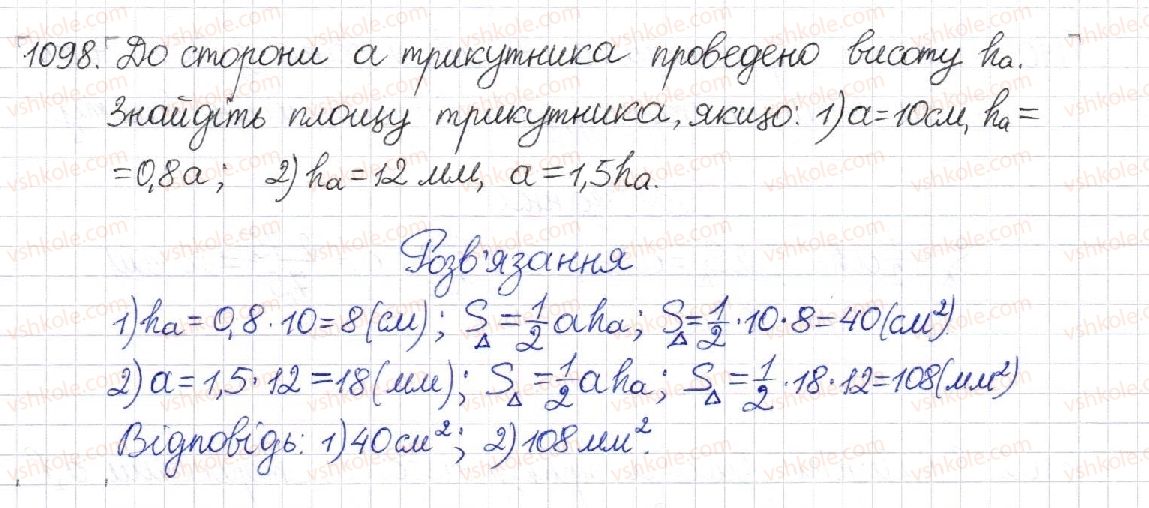 1098. До сторони a трикутника проведено висоту hₐ.
Знайдіть площу трикутника, якщо: 1) a=10см, hₐ=
=0,8a; 2) hₐ=12 мм, a=1,5hₐ.
Розв'язання
1) hₐ=0,8·10=8(см); S△=1/2 ahₐ; S△=1/2·10·8=40(см²)
2) a=1,5·12=18(мм); S△=1/2 ahₐ; S△=1/2·18·12=108(мм²)
Відповідь: 1) 40см²; 2) 108мм².
vshkole.com